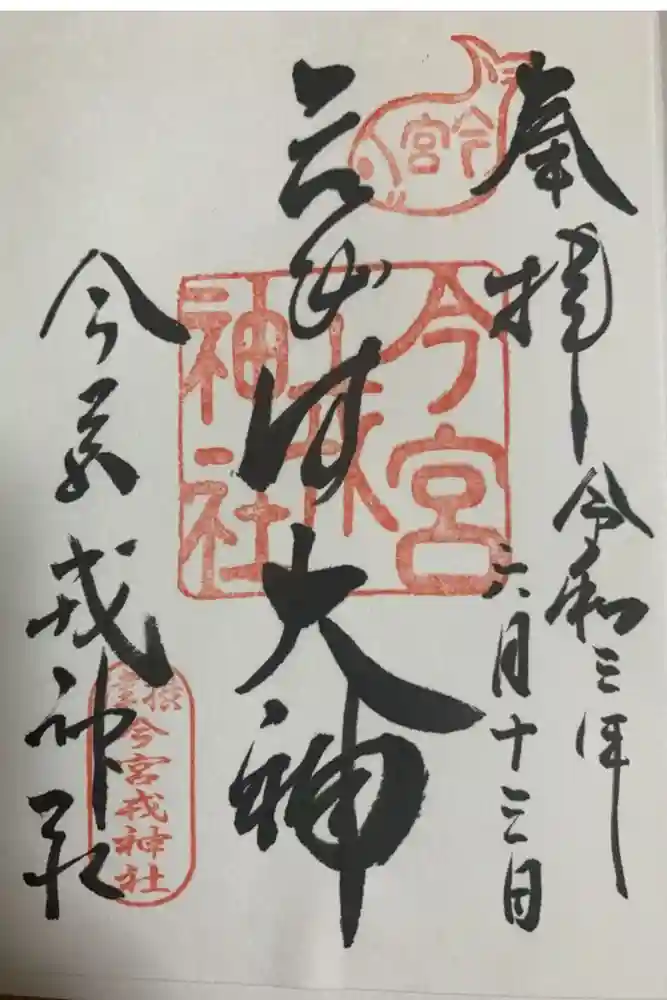 奉拝
令和三年
六月十三日
今宮
大神
今宮
戎
神社
今宮戎神社
今宮戎神社